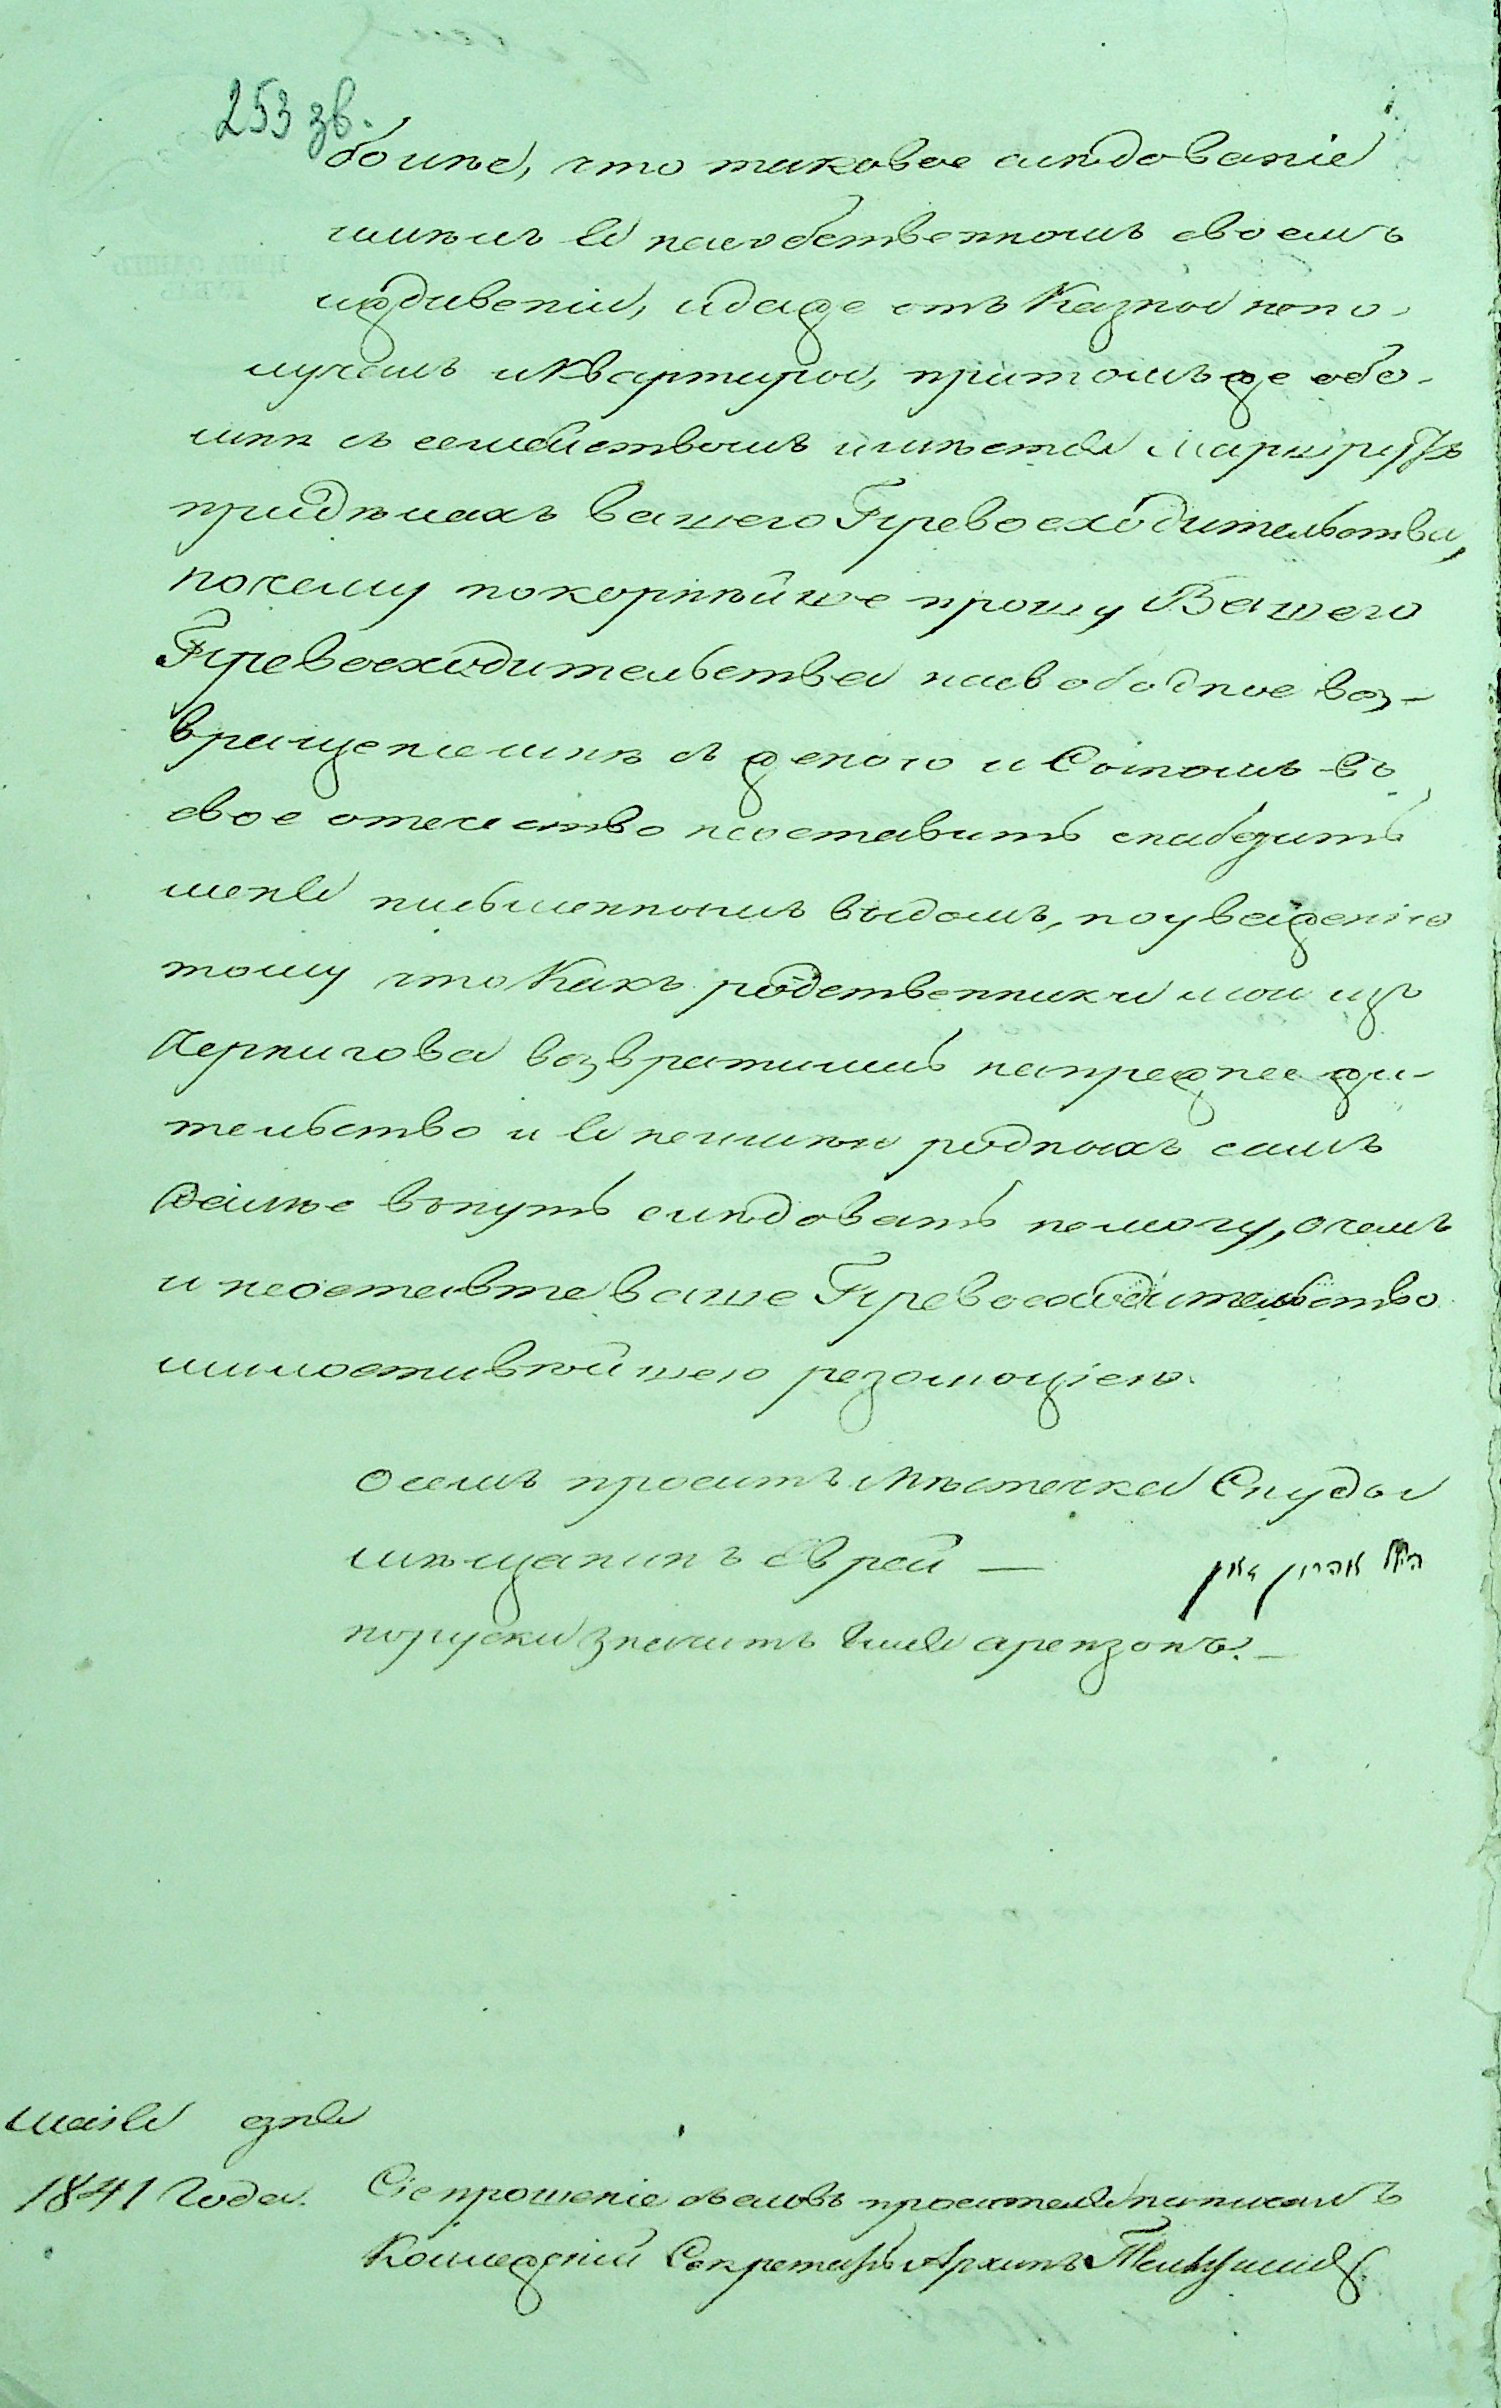 253 зв.
болѣе, что таковое слѣдованіе
имѣлъ я насобственномъ своемъ
иждивеніи, идаже отъ Казны непо-
лучалъ иквартиры, притомъже обо-
мнѣ съ семействомъ имѣется Маршрутъ
придѣлахъ вашего Превосходительства,
почему покорнѣйше прошу Вашего
Превосходительства насвободное воз-
вращеніемнѣ съ женою и Сыномъ въ
свое отечество неоставить снабдить
меня письменнымъ видомъ, поуваженію
тому что Какъ родственники мои изъ
Чернигова возвратились напрежнее жи-
тельство и я неимѣя родныхъ самъ
далѣе вопуть слѣдовать немогу, очемъ
и неоставте ваше Превосходительство
милостивѣйшею резолюціею.
Осемъ проситъ Мѣстечка Снуды
мѣщанинъ Еврей —
поруски значитъ арензонъ. —
маія дня
1841 Года.
Сіе прошеніе сословъ просителя написалъ
Колежскій Секретарь Архипъ